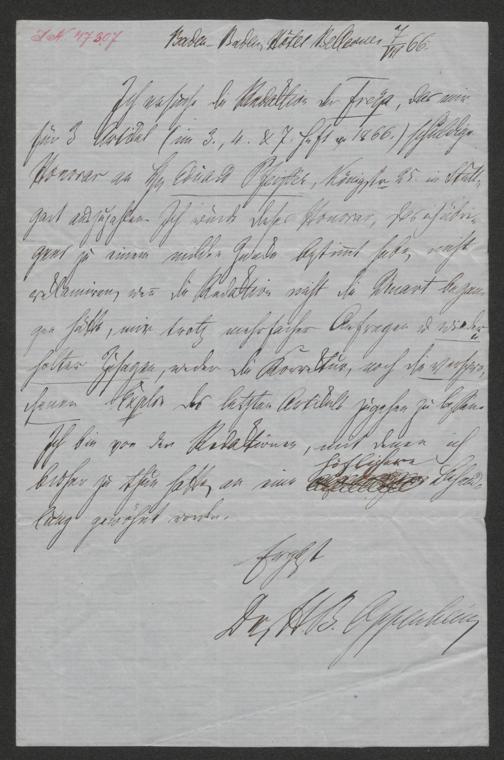 I.N. 47307
Baden-Baden, Hôtel Bellevue 7/VII 66.
Ich ersuche die Redaktion der Freya, das mir
für 3 Artikel (im 3., 4. & 7. Heft v. 1866.) schuldige
Honorar an Hrn Eduard Pfeiffer, Königstr. in Stutt-
gart auszuzahlen. Ich würde dieses Honorar, das ich übri-
gens zu einem milden Zwecke bestimmt habe, nicht
reklamiren, wenn die Redaktion nicht die Unart began-
gen hätte, mir trotz mehrfacher Anfragen & wieder-
holter Zusagen, weder die Korrektur, noch die versproche-
chenen Exple des letzten Artikels zugehen zu lassen.
Ich bin von den Redaktionen, mit denen ich
bisher zu thun hatte, an eine höflichere Behand-
lung gewöhnt worden.
Ergbst
Dr. H. B. Oppenheim